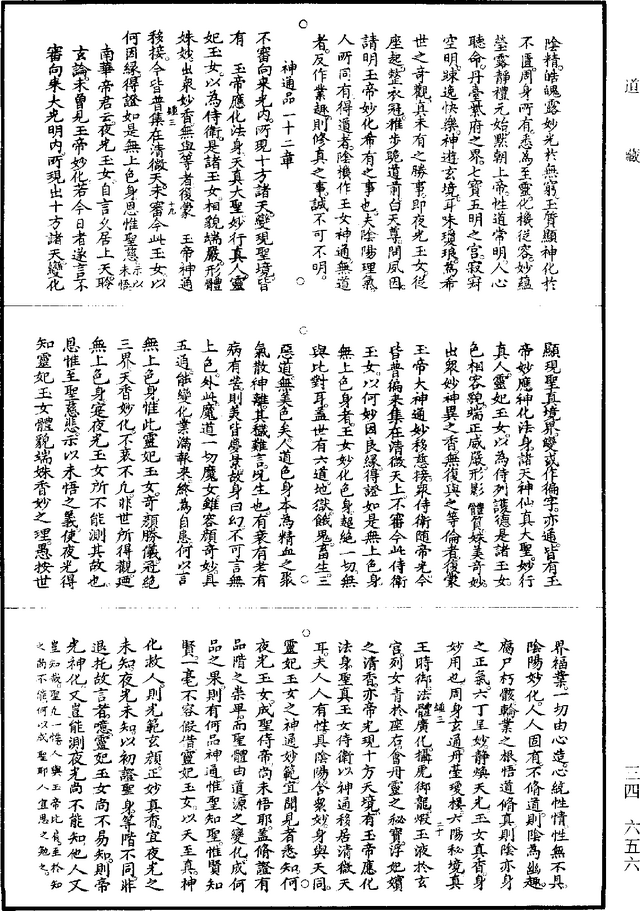 道藏
三四 六五六
陰精皓魄露妙光於無窮玉質顯神化於
不匱周身所有悉為至靈化機從容妙蘊
瑩露靜禮元始默朝上帝性道常明人心
聽命丹臺紫府之界七寶五明之宮寂寂
空明踈逸快樂神遊玄境耳味瓊瑛篤希
世之奇觀真未有之勝事即夜光玉女從
座起整衣冠雅步詭道前白天尊問夙因
請明玉帝妙化希有之事也夫陰陽理氣
人所同有得道者陰機作玉女神通無道
者反作業趣則修真之事誠不可不明
神通品一十二章
不審向來光內所現十方諸天變現聖境皆
有玉帝應化法身天真大聖妙行真人靈
妃玉女以為侍衛是諸玉女相貌端嚴形體
姝妙出衆妙香無與等者復蒙玉帝神通
移接今皆普集在清微天未審今此玉女以
何因緣得證如是無上色身思惟聖慈示以未悟
南華帝君云夜光玉女自言久居上天聆
玄論未曾見玉帝妙化若今日者遂言不
審向來大光明內所現出十方諸天變化
顯現聖真境界變或作徧字亦通皆有玉
帝妙應神化法身諸天神仙真大聖妙行
真人靈妃玉女以為侍列護德是諸玉女
色相容貌端正威嚴形影體質姝美奇妙
出衆妙神異之香無復與之等倫者復蒙
玉帝大神通妙移慈接衆侍衛隨帝光今
皆普徧來集在清微天上不審今此侍衛
玉女以何妙因良緣得證如是無上色身
無上色身者玉女妙化色身超絕一切無
與比對耳蓋世有六道地獄餓鬼畜生三
惡道無美色矣人道色身本為精血之聚
氣散神離其穢難言况生也有衰有老有
病有苦則美皆夢景故身曰幻不可言無
上色外此魔道一切魔女雖容顏奇妙具
五通能變化業滿報來終為自息何以言
無上色身惟此靈妃玉女奇顏勝儀冠絕
三界天香妙化不衰不凡非世所得觀廼
無上色身寔夜光玉女所不能測其故也
思惟至聖慈悲示以未悟之義使夜光得
知靈妃玉女體貌端姝香妙之理愚按世
界福業一切由心造心統性情性無不具
陰陽妙化人人固有不修道則陰為幽趣
腐尸朽骸輪業之根悟道修真則陰亦身
之正氣六丁呈妙靜煥天光玉女真香身
妙用也周身玄通丹臺瓊樸六陽秘境真
王時御法體廣化搆虎御龍嘏玉液於玄
宮列女青於座右含丹靈之秘寶浮妃嬪
之清香亦帝光現十方天境有玉帝應化
法身聖真玉女侍衛以神通移居清微天
耳夫人人有性具陰陽合衆妙身與天同
靈妃玉女之神通妙範宜開見者悉知何
夜光玉女成聖侍帝尚未悟耶蓋修證有
品階之崇卑而聖體由道源之變化成何
品之果則有何品神通惟聖知聖惟賢知
賢一毫不容假借靈妃玉女以天至真神
化救人則光範玄顏正妙真香宜夜光之
未知夜光未知以初證聖身等階不同非
退托故言者噫靈妃玉女尚不易知則帝
光神化又豈能測夜光尚不能知他人又
豈知哉聖凡一性人與玉帝比
之尚不能何以成聖耶人宜思之勉之